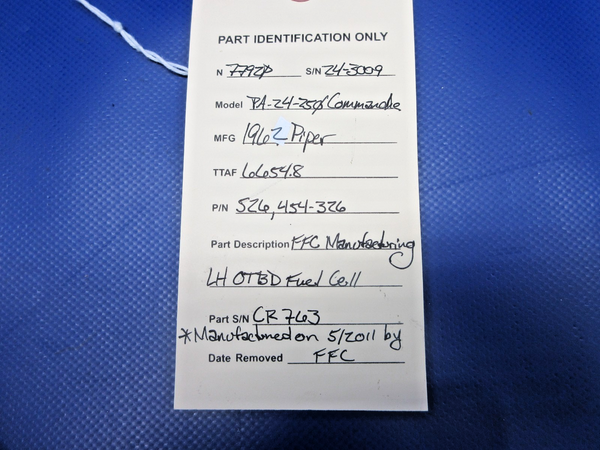 PART IDENTIFICATION ONLY
N 7792P S/N 24-3009
Model PA-24-250 Commanche
MFG 1962 Piper
TTAF 6654.8
P/N 526,454-326
Part Description FFC Manufacturing
LH OTBD Fuel Cell
Part S/N CR 763
*Manufactured on 5/2011 by
Date Removed FFC